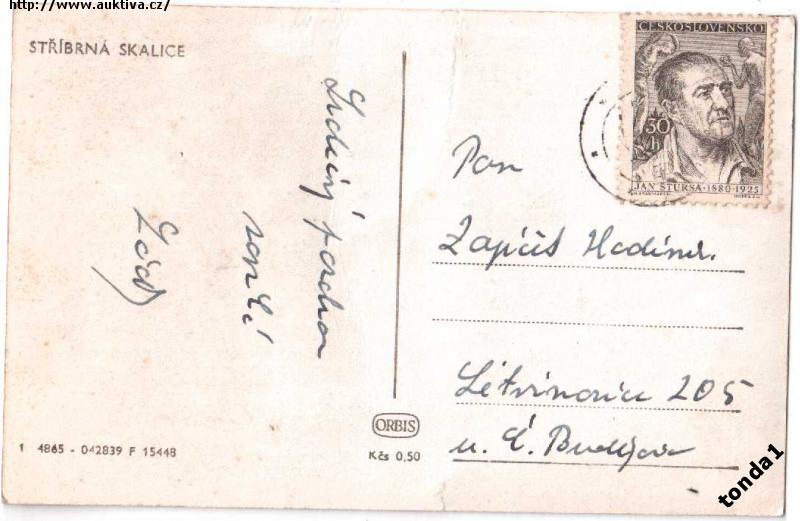 http://www.auktiva.cz/
STŘÍBRNÁ SKALICE
Srdečný pozdrav
ČESKOSLOVENSKO
30 h
JAN ŠTURSA · 1880-1925
Pan
Hodinář
Litvínovice 205
u Č. Budějovic
ORBIS
Kčs 0,50
1 4865 - 042839 F 15448
tonda1